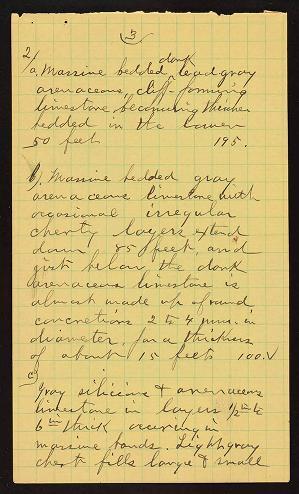 3
2/ dark
a. Massive bedded, lead gray
arenaceous cliff-forming
limestone becoming thinner
bedded in the lower
50 feet 195.
b). Massive bedded gray
arenaceous limestone with
occasional irregular
cherty layers extend
down 85 feet, and
just below the dark
arenaceous limestone is
almost made up of round
concretions 2 to 4 mm. in
diameter, for a thickness
of about 15 feet 100.
c)
Gray silicious & arenaceous
limestone in layers 1/2 in to
6 in thick occuring in
massive bands. Light gray
chert fills large & small